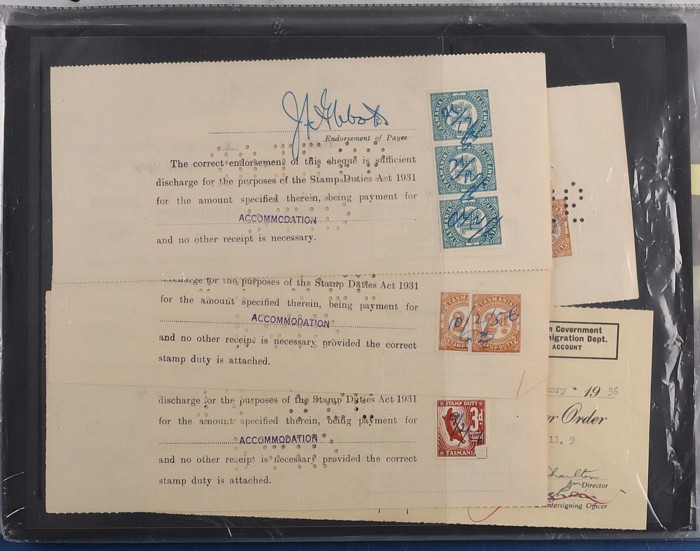 J A Gibbots
Endorsement of Payee
The correct endorsement of this cheque is sufficient
discharge for the purposes of the Stamp Duties Act 1931
for the amount specified therein, being payment for
ACCOMMODATION
and no other receipt is necessary.
discharge for the purposes of the Stamp Duties Act 1931
for the amount specified therein, being payment for
ACCOMMODATION
and no other receipt is necessary, provided the correct
stamp duty is attached.
TASMANIA
10/2/56
discharge for the purposes of the Stamp Duties Act 1931
for the amount specified therein, being payment for
ACCOMMODATION
and no other receipt is necessary, provided the correct
stamp duty is attached.
STAMP DUTY
3d
TASMANIA
n Government
migration Dept.
ACCOUNT
1956
r Order
Charlton
for Director
ntersigning Officer